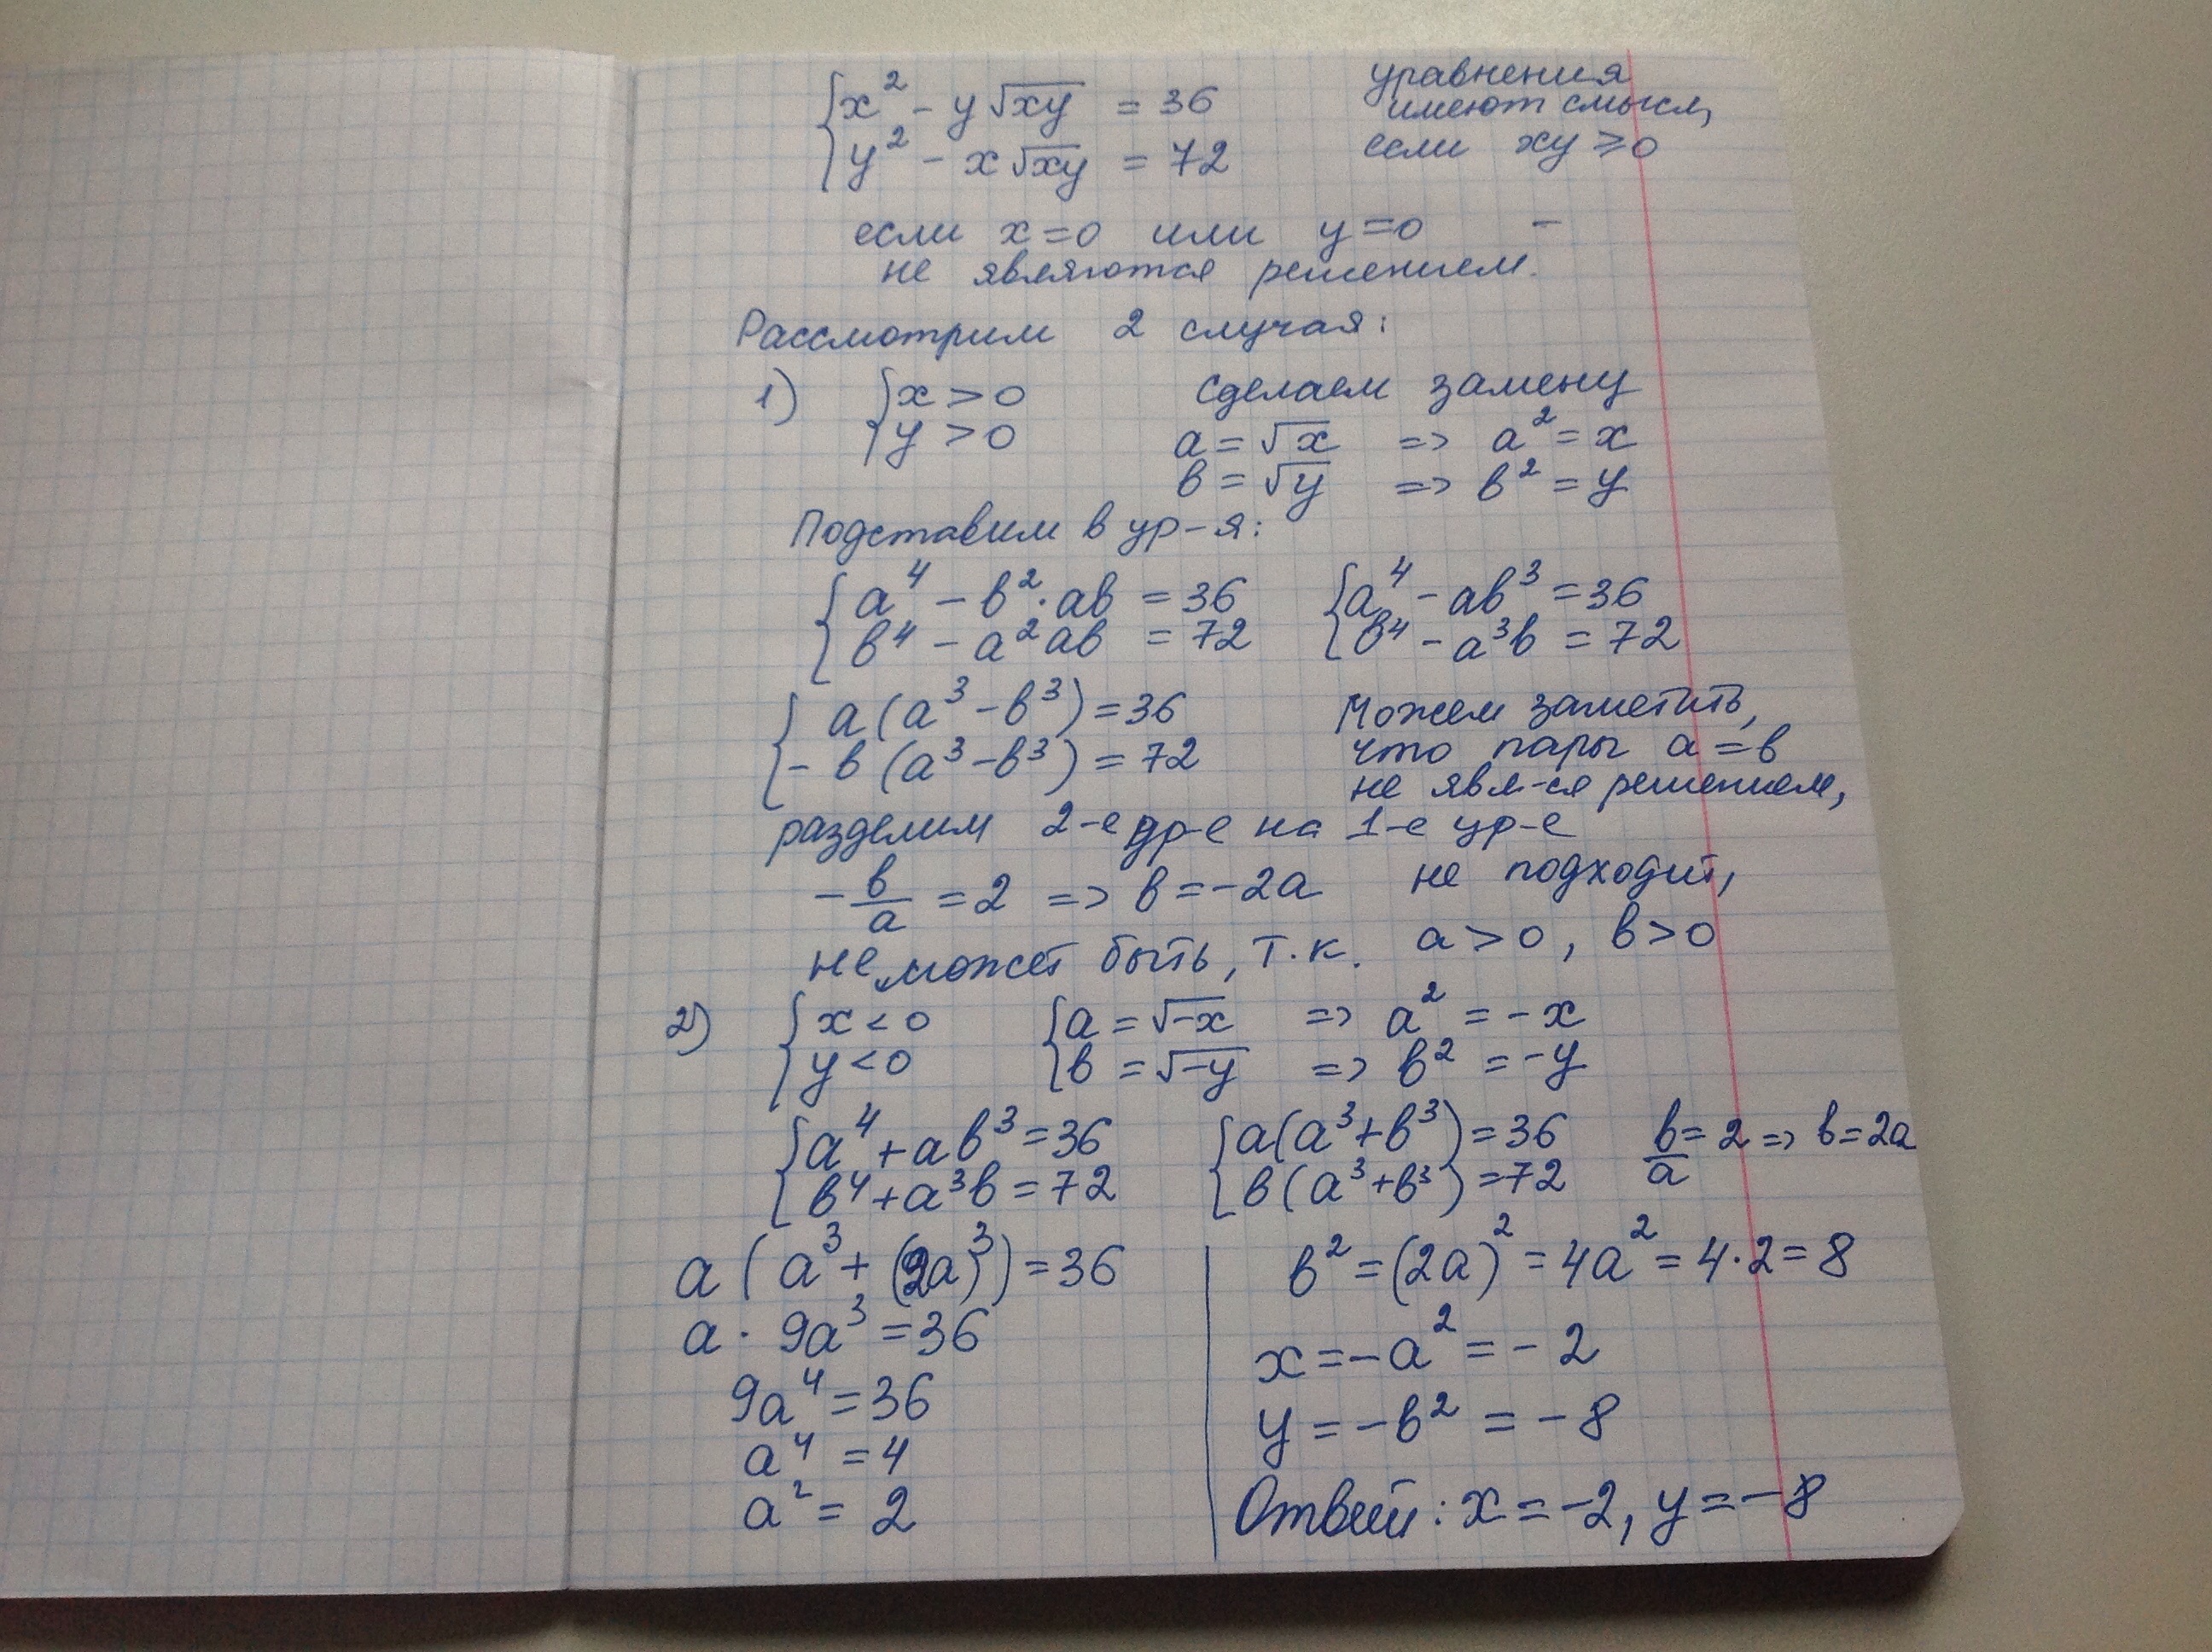 {x² - y√xy = 36
{y² - x√xy = 72
уравнения
имеют смысл,
если xy ≥ 0
если x=0 или y=0 -
не являются решением.
Рассмотрим 2 случая:
1) {x > 0
{y > 0
Сделаем замену
a = √x => a² = x
b = √y => b² = y
Подставим в ур-я:
{a⁴ - b²·ab = 36
{b⁴ - a²ab = 72
{a⁴ - ab³ = 36
{b⁴ - a³b = 72
{a(a³ - b³) = 36
{-b(a³ - b³) = 72
Можем заметить,
что пары a = b
не явл-ся решением,
разделим 2-е ур-е на 1-е ур-е
-b/a = 2 => b = -2a не подходит,
не может быть, т.к. a > 0, b > 0
2) {x < 0
{y < 0
{a = √-x => a² = -x
{b = √-y => b² = -y
{a⁴ + ab³ = 36
{b⁴ + a³b = 72
{a(a³ + b³) = 36
{b(a³ + b³) = 72
b/a = 2 => b = 2a
a(a³ + (2a)³) = 36
a · 9a³ = 36
9a⁴ = 36
a⁴ = 4
a² = 2
b² = (2a)² = 4a² = 4·2 = 8
x = -a² = -2
y = -b² = -8
Ответ: x = -2, y = -8